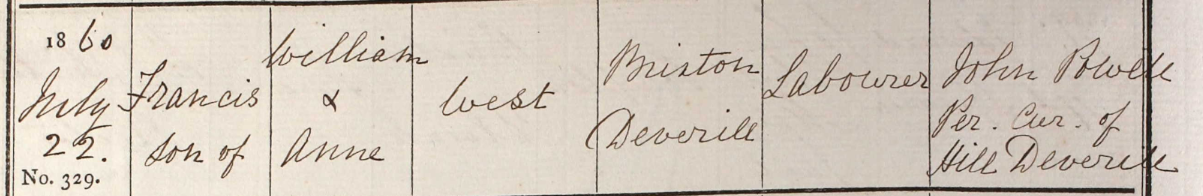 1860
July
22.
No. 329.
Francis
son of
William
&
Anne
West
Brixton
Deverill
Labourer
John Powell
Per. Cur. of
Hill Deverell